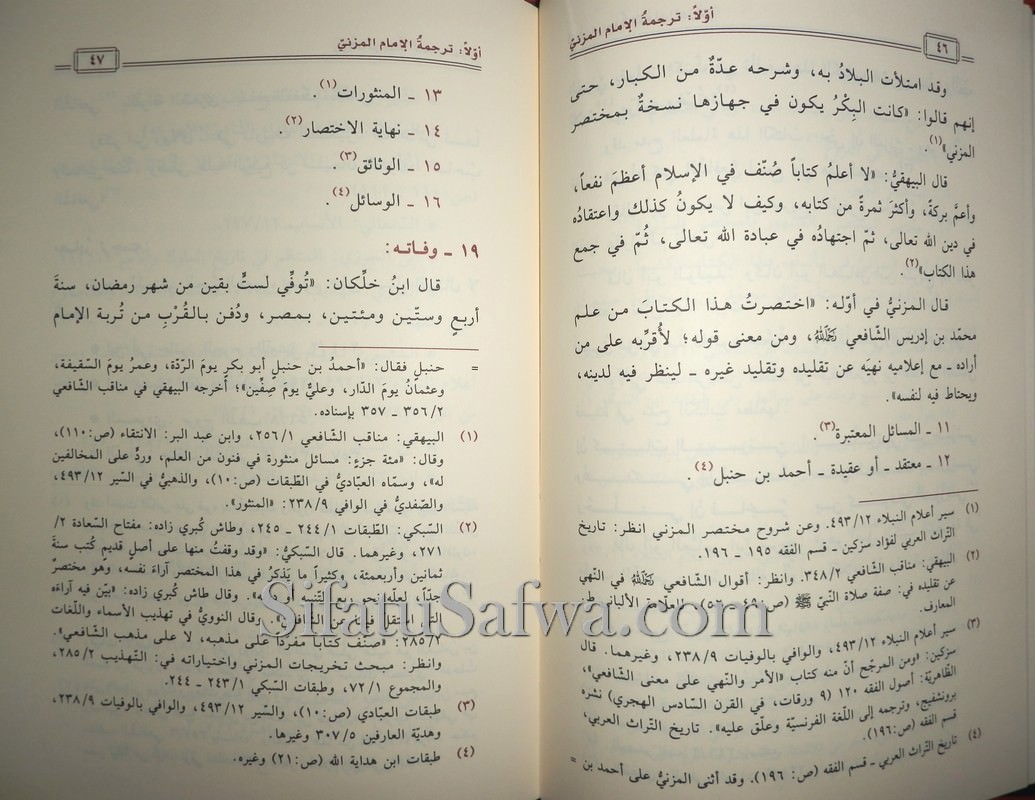 أوّلاً: ترجمةُ الإمام المزنيّ
٤٦
وقد امتلأت البلادُ به، وشرحه عدّةٌ من الكبار، حتى
إنهم قالوا: «كانت البِكْرُ يكون في جهازها نسخةٌ بمختصر
المزني»(١).
قال البيهقيُّ: «لا أعلمُ كتاباً صُنّف في الإسلام أعظمَ نفعاً،
وأعمَّ بركةً، وأكثرَ ثمرةً من كتابه، وكيف لا يكونُ كذلك واعتقادُه
في دين الله تعالى، ثمّ اجتهادُه في عبادة الله تعالى، ثُمّ في جمع
هذا الكتاب»(٢).
قال المزنيُّ في أوّله: «اختصرتُ هذا الكتابَ من علم
محمّد بن إدريس الشّافعي رحمه الله، ومن معنى قوله؛ لأُقرِّبه على من
أراده ـ مع إعلاميه نهيَه عن تقليده وتقليد غيره ـ لينظر فيه لدينه،
ويحتاط فيه لنفسه».
١١ ـ المسائل المعتبرة(٣).
١٢ ـ معتقد ـ أو عقيدة ـ أحمد بن حنبل(٤).
(١) سير أعلام النبلاء ٤٩٣/١٢. وعن شروح مختصر المزني انظر: تاريخ
التّراث العربي لفؤاد سزكين ـ قسم الفقه ١٩٥ ـ ١٩٦.
(٢) البيهقي: مناقب الشّافعي ٣٤٨/٢. وانظر: أقوال الشّافعي رحمه الله في النّهي
عن تقليده في: صفة صلاة النّبيّ ﷺ (ص: ٤٩ ـ ٥٦)، للعلّامة الألباني، ط
المعارف.
(٣) سير أعلام النبلاء ٤٩٣/١٢، والوافي بالوفيات ٢٣٨/٩، وغيرهما. قال
سزكين: «ومن المرجّح أنّ منه كتاب «الأمر والنّهي على معنى الشّافعي»،
الظّاهريّة: أصول الفقه ١٢٠ (٩ ورقات، في القرن السّادس الهجري) نشره
برونشفيج، وترجمه إلى اللّغة الفرنسيّة وعلّق عليه». تاريخ التّراث العربي،
قسم الفقه (ص:١٩٦).
(٤) تاريخ التّراث العربي ـ قسم الفقه (ص: ١٩٦). وقد أثنى المزنيُّ على أحمد بن =
أوّلاً: ترجمةُ الإمام المزنيّ
٤٧
١٣ ـ المنثورات(١).
١٤ ـ نهاية الاختصار(٢).
١٥ ـ الوثائق(٣).
١٦ ـ الوسائل(٤).
١٩ ـ وفاته:
قال ابنُ خلّكان: «تُوفِّي لستٍّ بقين من شهر رمضان، سنةَ
أربعٍ وستّين ومئتين، بمصر، ودُفن بالقُرْبِ من تُربة الإمام
= حنبل فقال: «أحمدُ بن حنبلٍ أبو بكرٍ يومَ الرّدّة، وعمرُ يومَ السّقيفة،
وعثمانُ يومَ الدّار، وعليٌّ يومَ صِفِّين»؛ أخرجه البيهقي في مناقب الشّافعي
٣٥٦/٢ ـ ٣٥٧ بإسناده.
(١) البيهقي: مناقب الشّافعي ٢٥٦/١، وابن عبد البر: الانتقاء (ص:١١٠)،
وقال: «مئة جزءٍ: مسائل منثورة في فنون من العلم، وردٌّ على المخالفين
له»، وسمّاه العبّاديُّ في الطّبقات (ص:١٠)، والذهبيُّ في السّير ٤٩٣/١٢،
والصّفديُّ في الوافي ٢٣٨/٩: «المنثور».
(٢) السّبكي: الطّبقات ٢٤٤/١ ـ ٢٤٥، وطاش كُبري زاده: مفتاح السّعادة ٢/
٢٧١، وغيرهما. قال السّبكيُّ: «وقد وقفتُ منها على أصلٍ قديمٍ كُتب سنةَ
ثمانين وأربعمئة، وكثيراً ما يَذكرُ في هذا المختصر آراءَ نفسه، وهو مختصرٌ
جدّاً، لعلّه نحو ربع التّنبيه أو دونه». وقال طاش كُبري زاده: «بيّن فيه آراءَه
التي استقلّ فيها عن الشّافعيّ». وقال النوويُّ في تهذيب الأسماء واللّغات
٢٨٥/٢: «صنّف كتاباً مفرداً على مذهبه، لا على مذهب الشّافعي».
وانظر: مبحث تخريجات المزني واختياراته في: التّهذيب ٢٨٥/٢،
والمجموع ٧٢/١، وطبقات السّبكي ٢٤٣/١ ـ ٢٤٤.
(٣) طبقات العبّادي (ص:١٠)، والسّير ٤٩٣/١٢، والوافي بالوفيات ٢٣٨/٩،
وهديّة العارفين ٣٠٧/٥ وغيرها.
(٤) طبقات ابن هداية الله (ص:٢١) وغيره.
SifatuSafwa.com